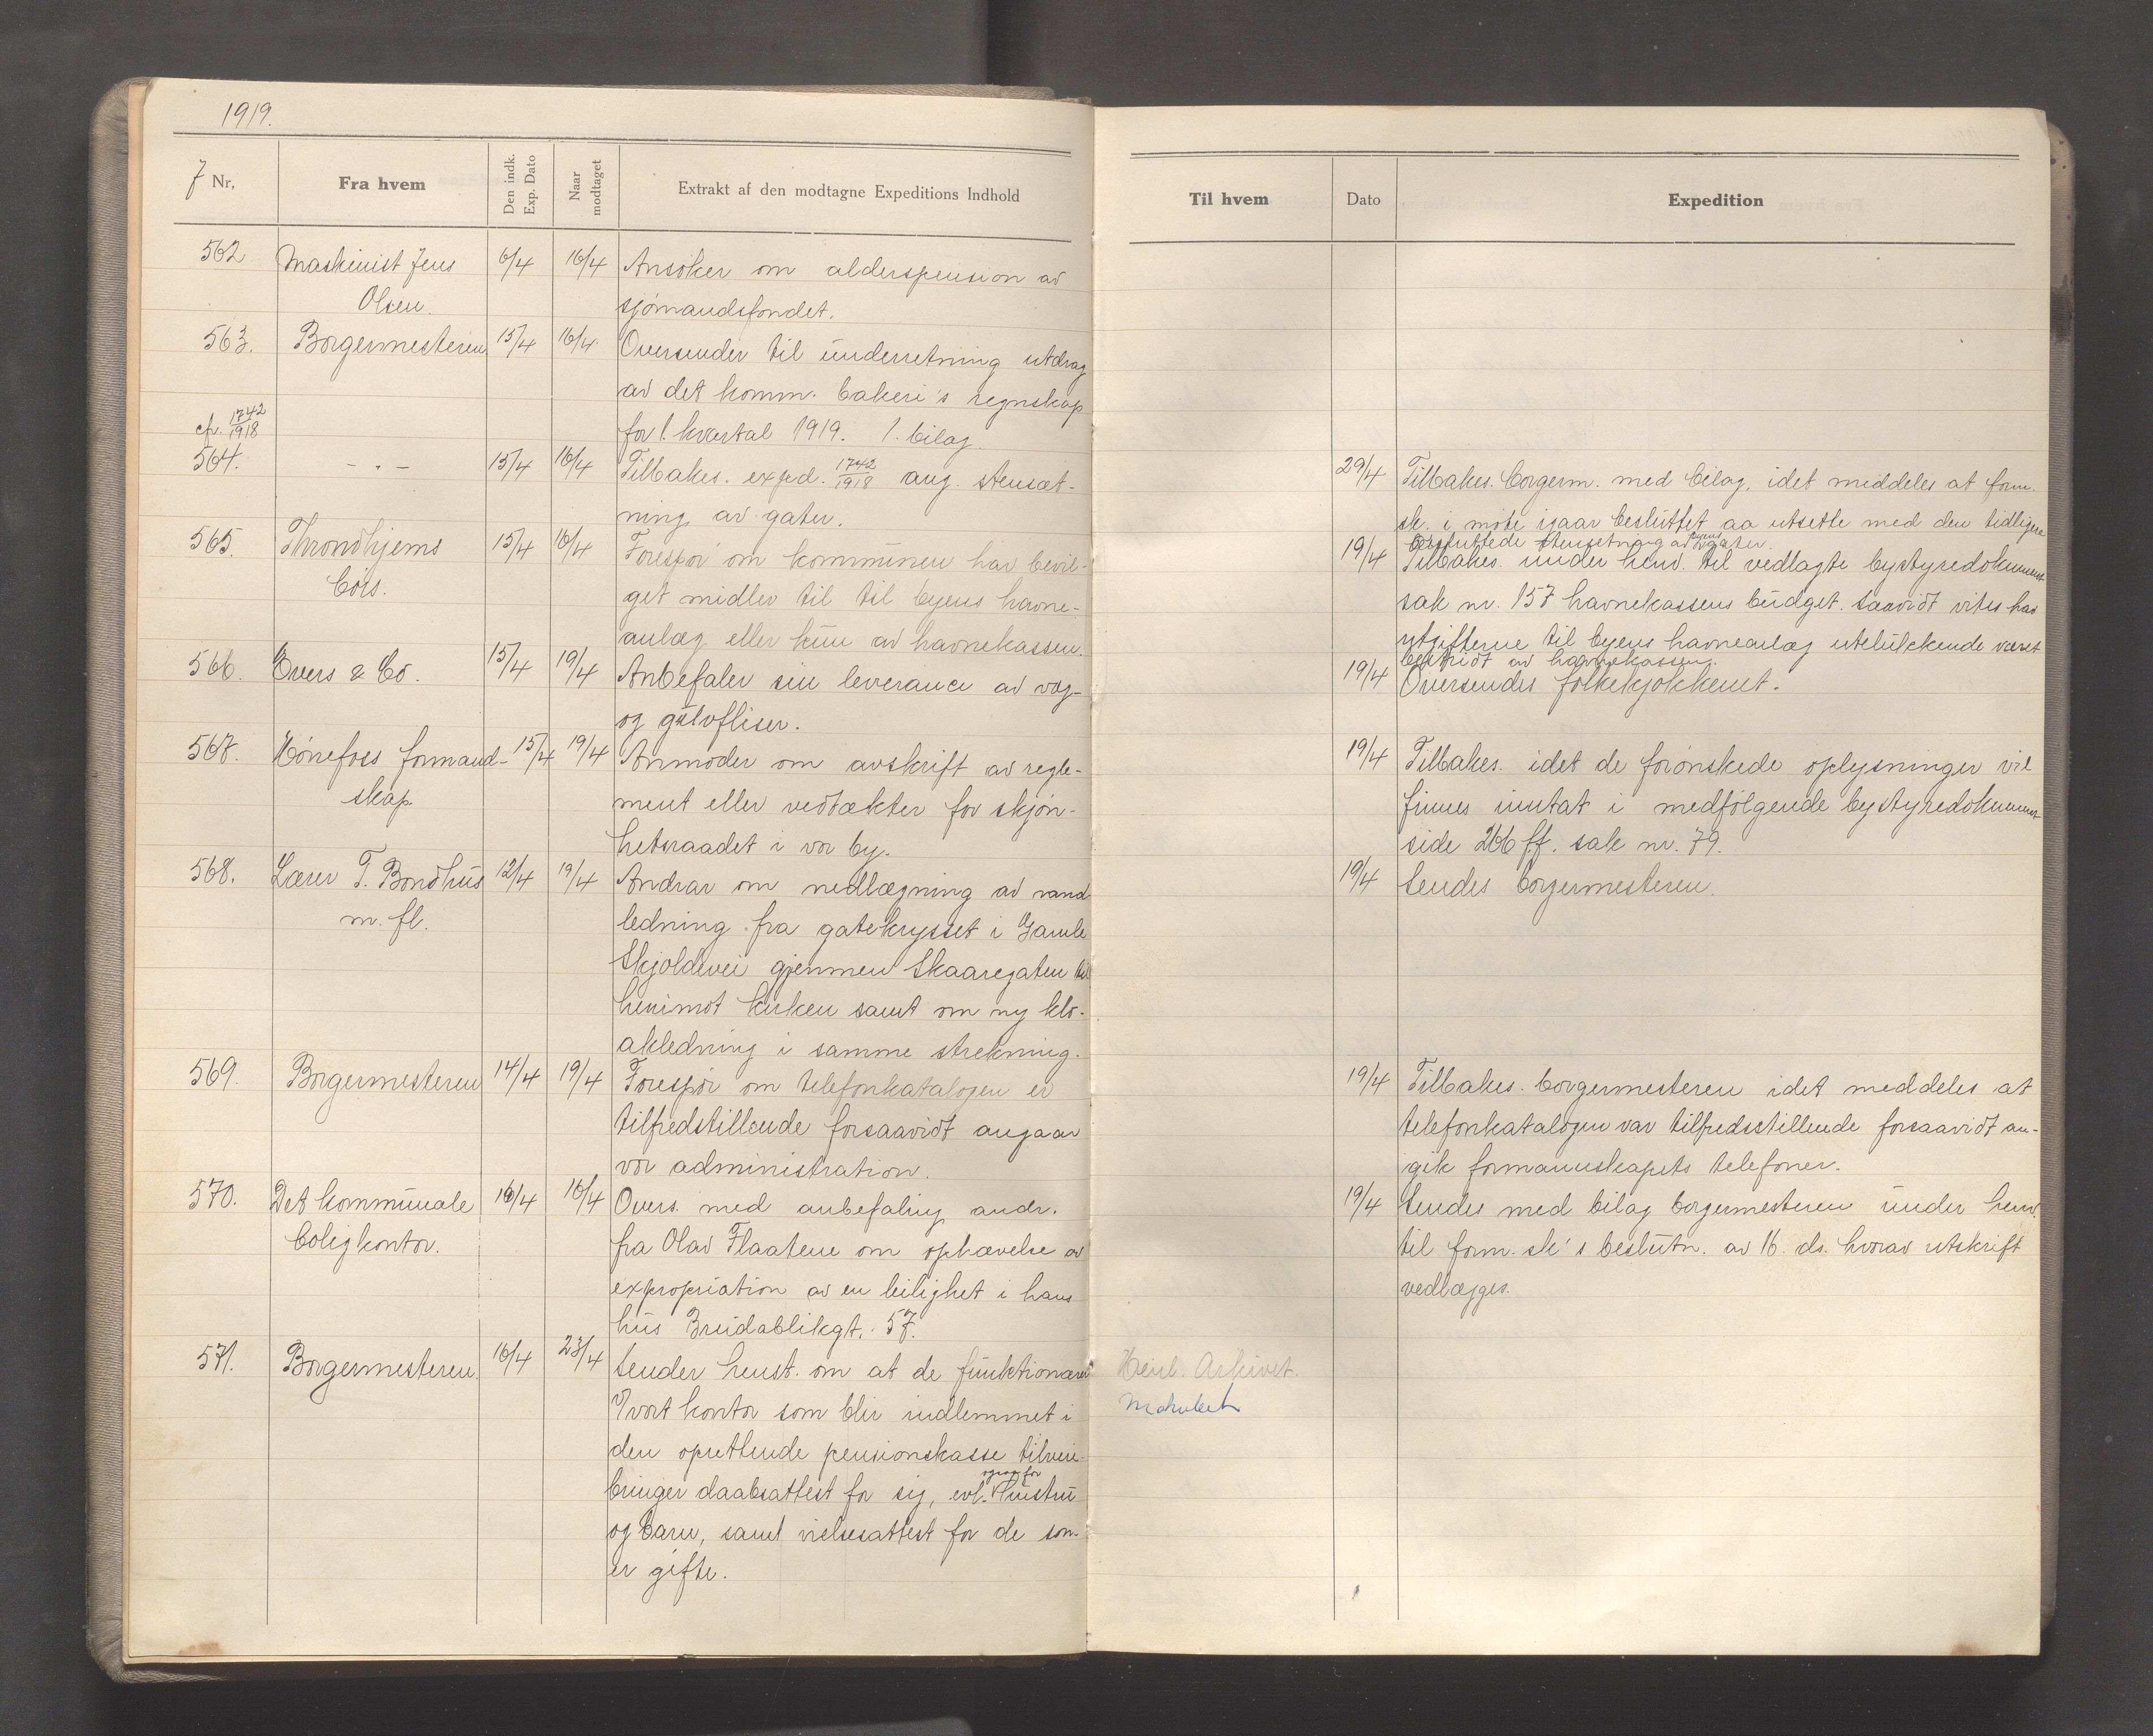 1919.
J Nr,
Fra hvem
Den indk. Exp. Dato
Naar modtaget
Extrakt af den modtagne Expeditions Indhold
562. Maskinist Jens 6/4 16/4 Ansöker om alderspension av
Olsen. sjömandsfondet.
563. Borgermesteren 15/4 16/4 Oversender til underretning utdrag
av det komm. bakeri's regnskap
cfr. 1742/1918 for 1. kvartal 1919. 1. bilag.
564. - " - 15/4 16/4 Tilbakes. exped. 1742/1918 ang. stensæt-
ning av gater.
565. Throndhjems 15/4 16/4 Forespör om kommunen har bevil-
börs. get midler til til byens havne-
anlæg eller kun av havnekassen.
566. Evers & Co. 15/4 19/4 Anbefaler sin leverance av væg-
og gulvfliser.
567. Hönefoss formand- 15/4 19/4 Anmoder om avskrift av regle-
skap. ment eller vedtækter for skjön-
hetsraadet i vor by.
568. Lærer T. Bondhus 12/4 19/4 Andrar om nedlægning av vand-
m. fl. ledning fra gatekrysset i Gamle
Skjoldevei gjennem Skaaregaten til
henimot kirken samt om ny klo-
akledning i samme strekning.
569. Borgermesteren 14/4 19/4 Forespör om telefonkatalogen er
tilfredstillende forsaavidt angaar
vor administration.
570. Det kommunale 16/4 16/4 Overs. med anbefaling andr.
boligkontor. fra Olav Flaatene om ophævelse av
expropriation av en leilighet i hans
hus Breidablikgt. 57.
571. Borgermesteren 16/4 23/4 Sender henst. om at de funktionærer
v/vort kontor som blir indlemmet i
den oprettende pensionskasse tilveie-
ogsaa for
bringer daabsattest for sig, evt. hustru
og barn, samt vielsesattest for de som
er gifte.
Til hvem
Dato
Expedition
29/4 Tilbakes. borgerm. med bilag, idet middeles at form.
sk. i möte igaar besluttet aa utsette med den tidligere
besluttede stensetning av byens gater.
19/4 Tilbakes. under henv. til vedlagte bystyredokument
sak nr. 157 havnekassens budget. Saavidt vites har
utgifterne til byens havneanlæg utelukkende været
bestridt av havnekassen.
19/4 Oversendes folkekjökkenet.
19/4 Tilbakes. idet de forönskede oplysninger vil
finnes inntat i medfölgende bystyredokument
side 266 ff. sak nr. 79.
19/4 Sendes borgermesteren.
19/4 Tilbakes. borgermesteren idet meddeles at
telefonkatalogen var tilfredsstillende forsaavidt an-
gik formannskapets telefoner.
19/4 Sendes med bilag borgermesteren under henv.
til form. sk's beslutn. av 16. ds. hvorav utskrift
vedlægges.
Henl. Arkivet.